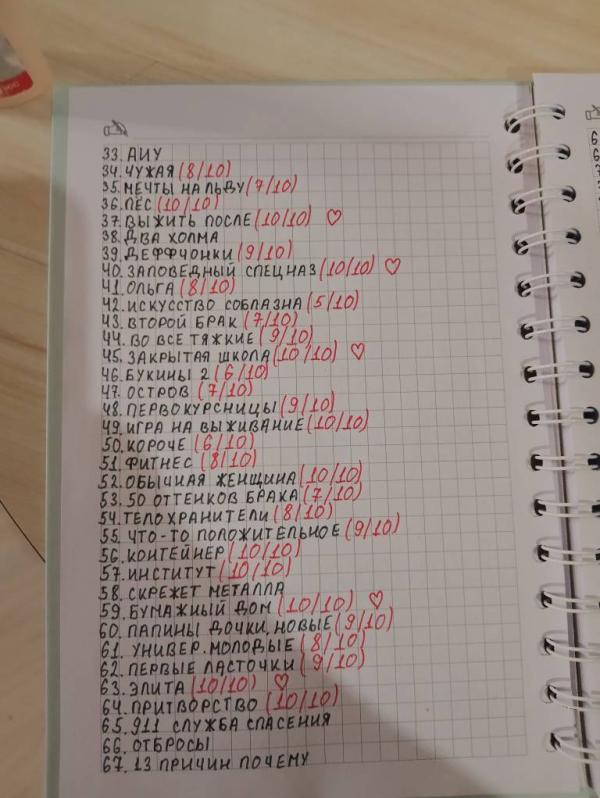 33. АИУ
34. ЧУЖАЯ (8/10)
35. МЕЧТЫ НА ЛЬДУ (7/10)
36. ПЁС (10/10)
37. ВЫЖИТЬ ПОСЛЕ (10/10) ♡
38. ДВА ХОЛМА
39. ДЕФФЧОНКИ (9/10)
40. ЗАПОВЕДНЫЙ СПЕЦНАЗ (10/10) ♡
41. ОЛЬГА (8/10)
42. ИСКУССТВО СОБЛАЗНА (5/10)
43. ВТОРОЙ БРАК (7/10)
44. ВО ВСЕ ТЯЖКИЕ (9/10)
45. ЗАКРЫТАЯ ШКОЛА (10/10) ♡
46. БУКИНЫ 2 (6/10)
47. ОСТРОВ (7/10)
48. ПЕРВОКУРСНИЦЫ (9/10)
49. ИГРА НА ВЫЖИВАНИЕ (10/10)
50. КОРОЧЕ (6/10)
51. ФИТНЕС (8/10)
52. ОБЫЧНАЯ ЖЕНЩИНА (10/10)
53. 50 ОТТЕНКОВ БРАКА (7/10)
54. ТЕЛОХРАНИТЕЛИ (8/10)
55. ЧТО-ТО ПОЛОЖИТЕЛЬНОЕ (9/10)
56. КОНТЕЙНЕР (10/10)
57. ИНСТИТУТ (10/10)
58. СКРЕЖЕТ МЕТАЛЛА
59. БУМАЖНЫЙ ДОМ (10/10) ♡
60. ПАПИНЫ ДОЧКИ. НОВЫЕ (9/10)
61. УНИВЕР. МОЛОДЫЕ (8/10)
62. ПЕРВЫЕ ЛАСТОЧКИ (9/10)
63. ЭЛИТА (10/10) ♡
64. ПРИТВОРСТВО (10/10)
65. 911 СЛУЖБА СПАСЕНИЯ
66. ОТБРОСЫ
67. 13 ПРИЧИН ПОЧЕМУ